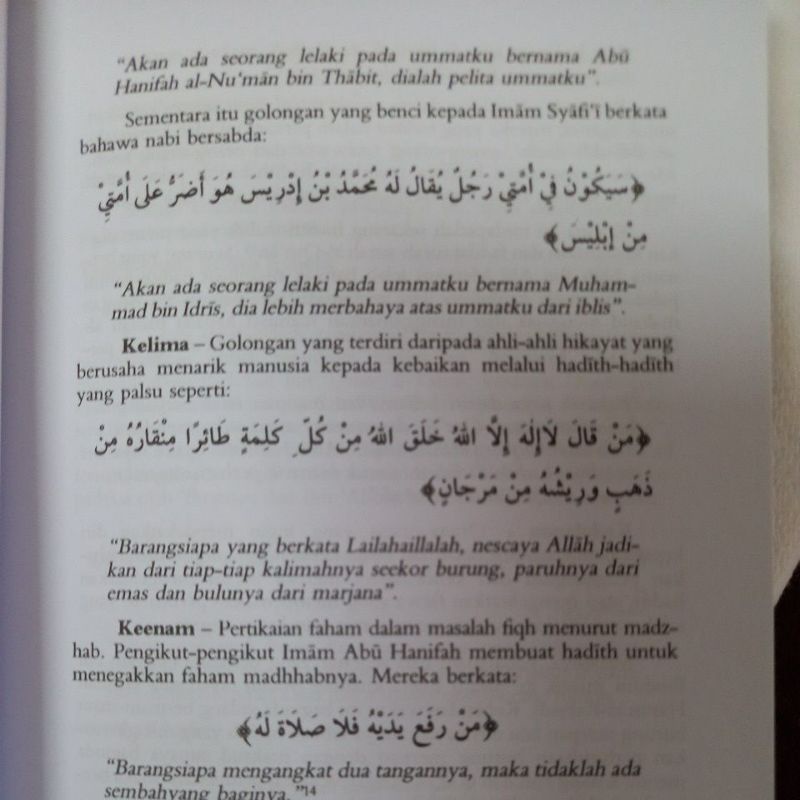 “Akan ada seorang lelaki pada ummatku bernama Abū
Hanifah al-Nu‘mān bin Thābit, dialah pelita ummatku”.
Sementara itu golongan yang benci kepada Imām Syāfi‘ī berkata
bahawa nabi bersabda:
﴿سَيَكُوْنُ فِيْ أُمَّتِيْ رَجُلٌ يُقَالُ لَهُ مُحَمَّدُ بْنُ إِدْرِيْسَ هُوَ أَضَرُّ عَلَى أُمَّتِيْ
مِنْ إِبْلِيْسَ﴾
“Akan ada seorang lelaki pada ummatku bernama Muham-
mad bin Idrīs, dia lebih merbahaya atas ummatku dari iblis”.
Kelima – Golongan yang terdiri daripada ahli-ahli hikayat yang
berusaha menarik manusia kepada kebaikan melalui hadīth-hadīth
yang palsu seperti:
﴿مَنْ قَالَ لَاإِلٰهَ إِلَّا اللهُ خَلَقَ اللهُ مِنْ كُلِّ كَلِمَةٍ طَائِرًا مِنْقَارُهُ مِنْ
ذَهَبٍ وَرِيْشُهُ مِنْ مَرْجَانٍ﴾
“Barangsiapa yang berkata Lailahaillalah, nescaya Allāh jadi-
kan dari tiap-tiap kalimahnya seekor burung, paruhnya dari
emas dan bulunya dari marjana”.
Keenam – Pertikaian faham dalam masalah fiqh menurut madz-
hab. Pengikut-pengikut Imām Abū Hanifah membuat hadīth untuk
menegakkan faham madhhabnya. Mereka berkata:
﴿مَنْ رَفَعَ يَدَيْهُ فَلَا صَلَاةَ لَهُ﴾
“Barangsiapa mengangkat dua tangannya, maka tidaklah ada
sembahyang baginya.”14